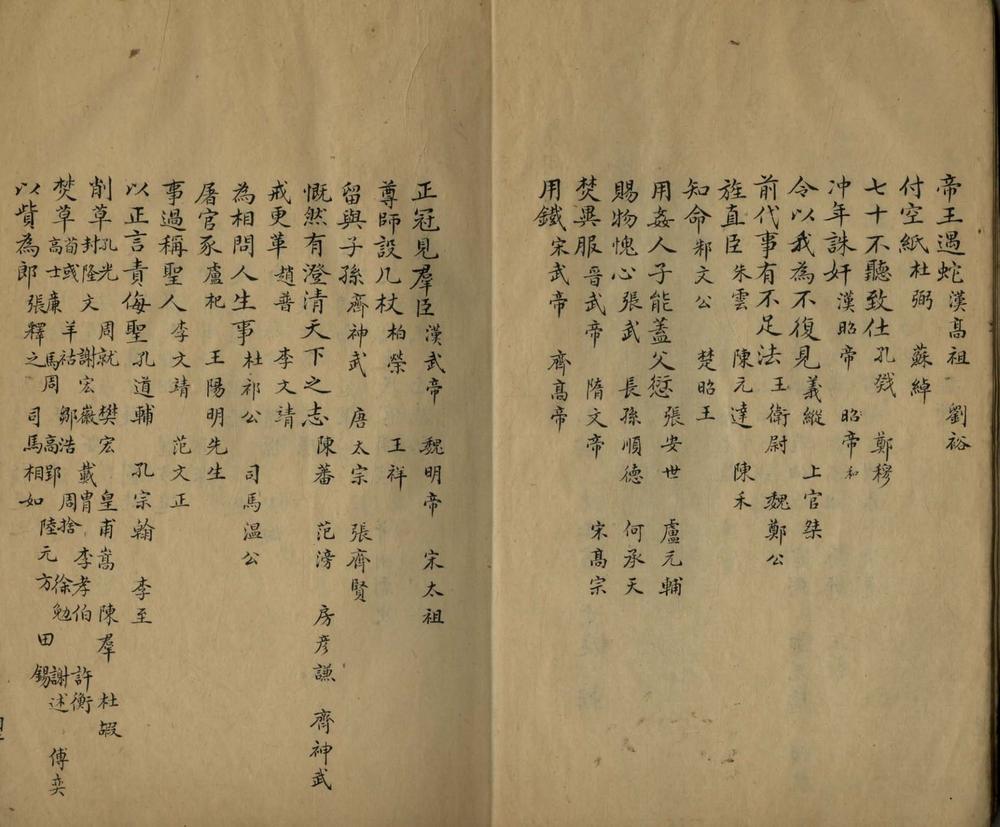 帝王遇蛇 漢高祖 劉裕
付空紙 杜弼 蘇綽
七十不聽致仕 孔戣 鄭穆
冲年誅奸 漢昭帝 昭帝和
令以我為不復見 義縱 上官桀
前代事有不足法 王衛尉 魏鄭公
旌直臣 朱雲 陳元達 陳禾
知命 邾文公 楚昭王
用姦人子能蓋父愆 張安世 盧元輔
賜物愧心 張武 長孫順德 何承天
焚異服 晋武帝 隋文帝 宋高宗
用鐵 宋武帝 齊高帝
正冠見羣臣 漢武帝 魏明帝 宋太祖
尊師設几杖 桓榮 王祥
留與子孫 齊神武 唐太宗 張齊賢
慨然有澄清天下之志 陳蕃 范滂 房彥謙 齊神武
戒更革 趙普 李文靖
為相問人生事 杜祁公 司馬溫公
屠官豕 盧杞 王陽明先生
事過稱聖人 李文靖 范文正
以正言責侮聖 孔道輔 孔宗翰 李至
削草 孔光 周就 樊宏 皇甫嵩 陳羣 杜嘏
封隆文 謝宏微 戴冑 李孝伯 許衡
焚草 荀彧 羊祜 鄒浩 周捨 徐勉 謝述 傅奕
高士廉 馬周 高郢 陸元方 田錫
以貲為郎 張釋之 司馬相如